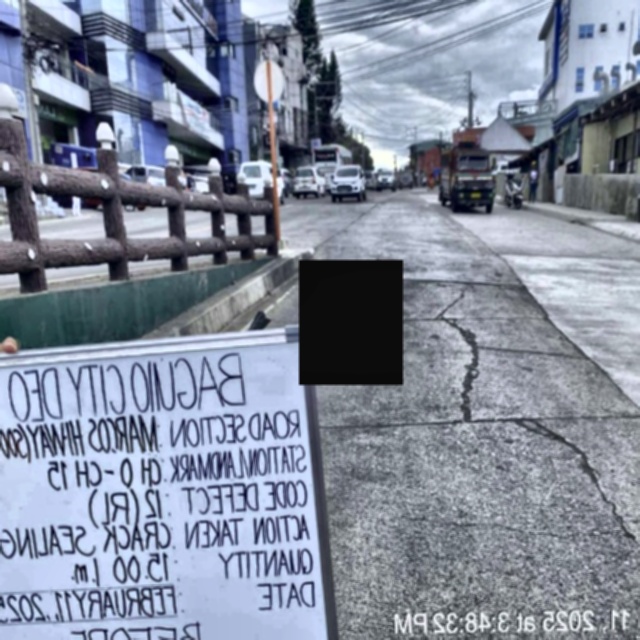 BAGUIO CITY DEO
ROAD SECTION : MARCOS HIWAY
STATION/LANDMARK : CH 0 - CH 15
CODE DEFECT : 12 (R1)
ACTION TAKEN : CRACK SEALING
QUANTITY : 15.00 l.m.
DATE : FEBRUARY 11, 2025
BEFORE
11, 2025 at 3:48:32 PM